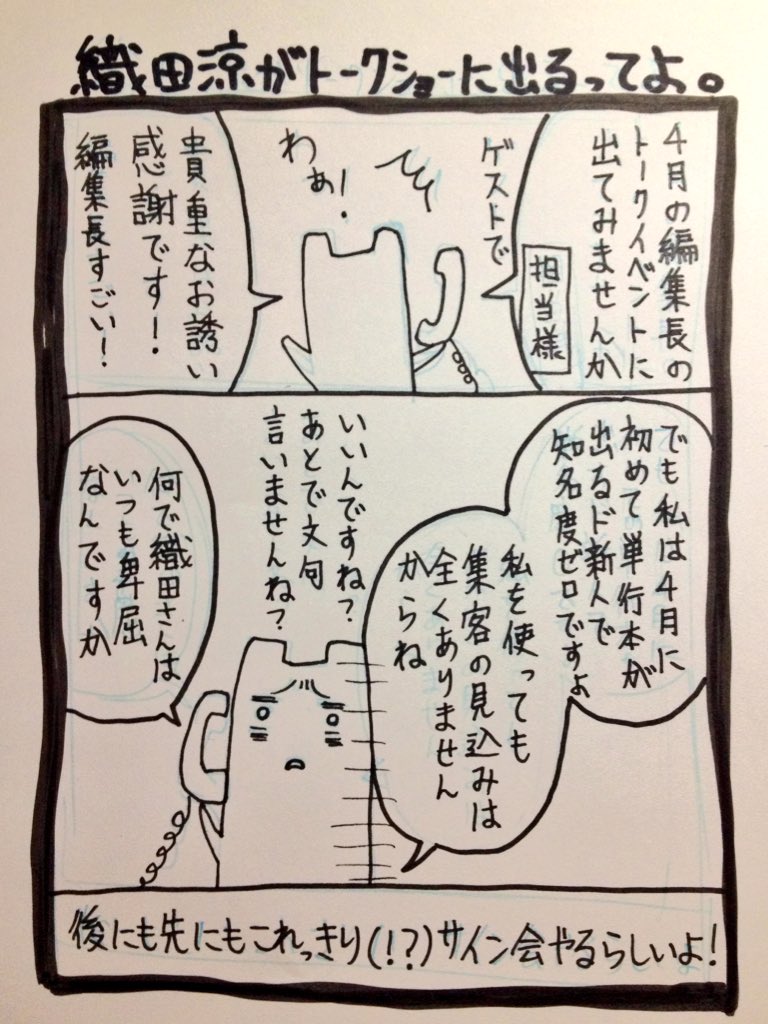 織田涼がトークショーに出るってよ。
4月の編集長の
トークイベントに
出てみませんか
担当様
ゲストで
わぁ!
貴重なお誘い
感謝です!
編集長すごい!
でも私は4月に
初めて単行本が
出るド新人で
知名度ゼロですよ
私を使っても
集客の見込みは
全くありません
からね
いいんですね?
あとで文句
言いませんね?
何で織田さんは
いつも卑屈
なんですか
後にも先にもこれっきり(!?)サイン会やるらしいよ!